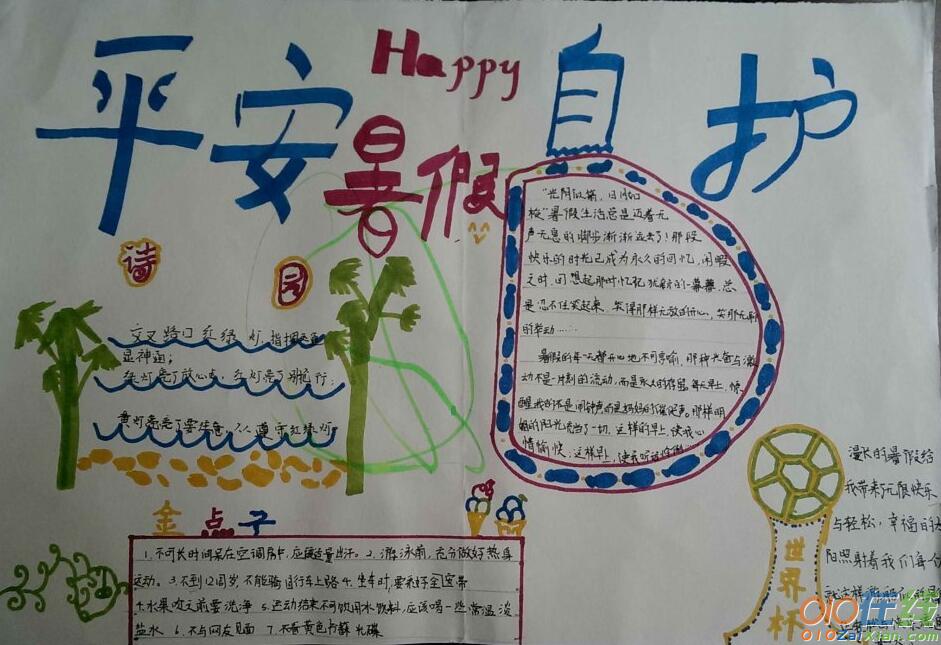 Happy
平安 自护
暑假
诗园
交叉路口红绿灯,指挥交通
显神通;
绿灯亮了放心走,红灯亮了别抢行;
黄灯亮亮了要注意,人人遵守红绿灯
金点子
1.不可长时间呆在空调房中,应该适量出汗。2.游泳前,充分做好热身
运动。3.不到12周岁不能骑自行车上路 4.坐车时,要系好安全带
4.水果吃之前要洗净 5.运动结束不可饮用冰饮料,应该喝一些常温淡
盐水 6.不与网友见面 7.不看黄色书籍光碟
"光阴似箭,日月如
梭"暑假生活总是迈着无
声无息的脚步渐渐远去了!那段
快乐的时光已成为永久的回忆,闲暇
之时,回想起那时忆犹新的一幕幕,总
是忍不住笑起来,笑得那样无敌的开心,笑那无
的举动……
暑假的每一天都开心地不可言喻,那种兴奋与激
动不是一时刻的流动,而是永久的存留,每天早上,
醒我的不是闹钟声而是妈妈的催促声。那样明
媚的阳光洗了一切,这样的早上,使我心
情愉快;这样早上,使我
世界杯
漫长的暑假给
我带来了无限快乐
与轻松,幸福的
阳照射着我们每一个
就这样
010在线
010zaiXian.com